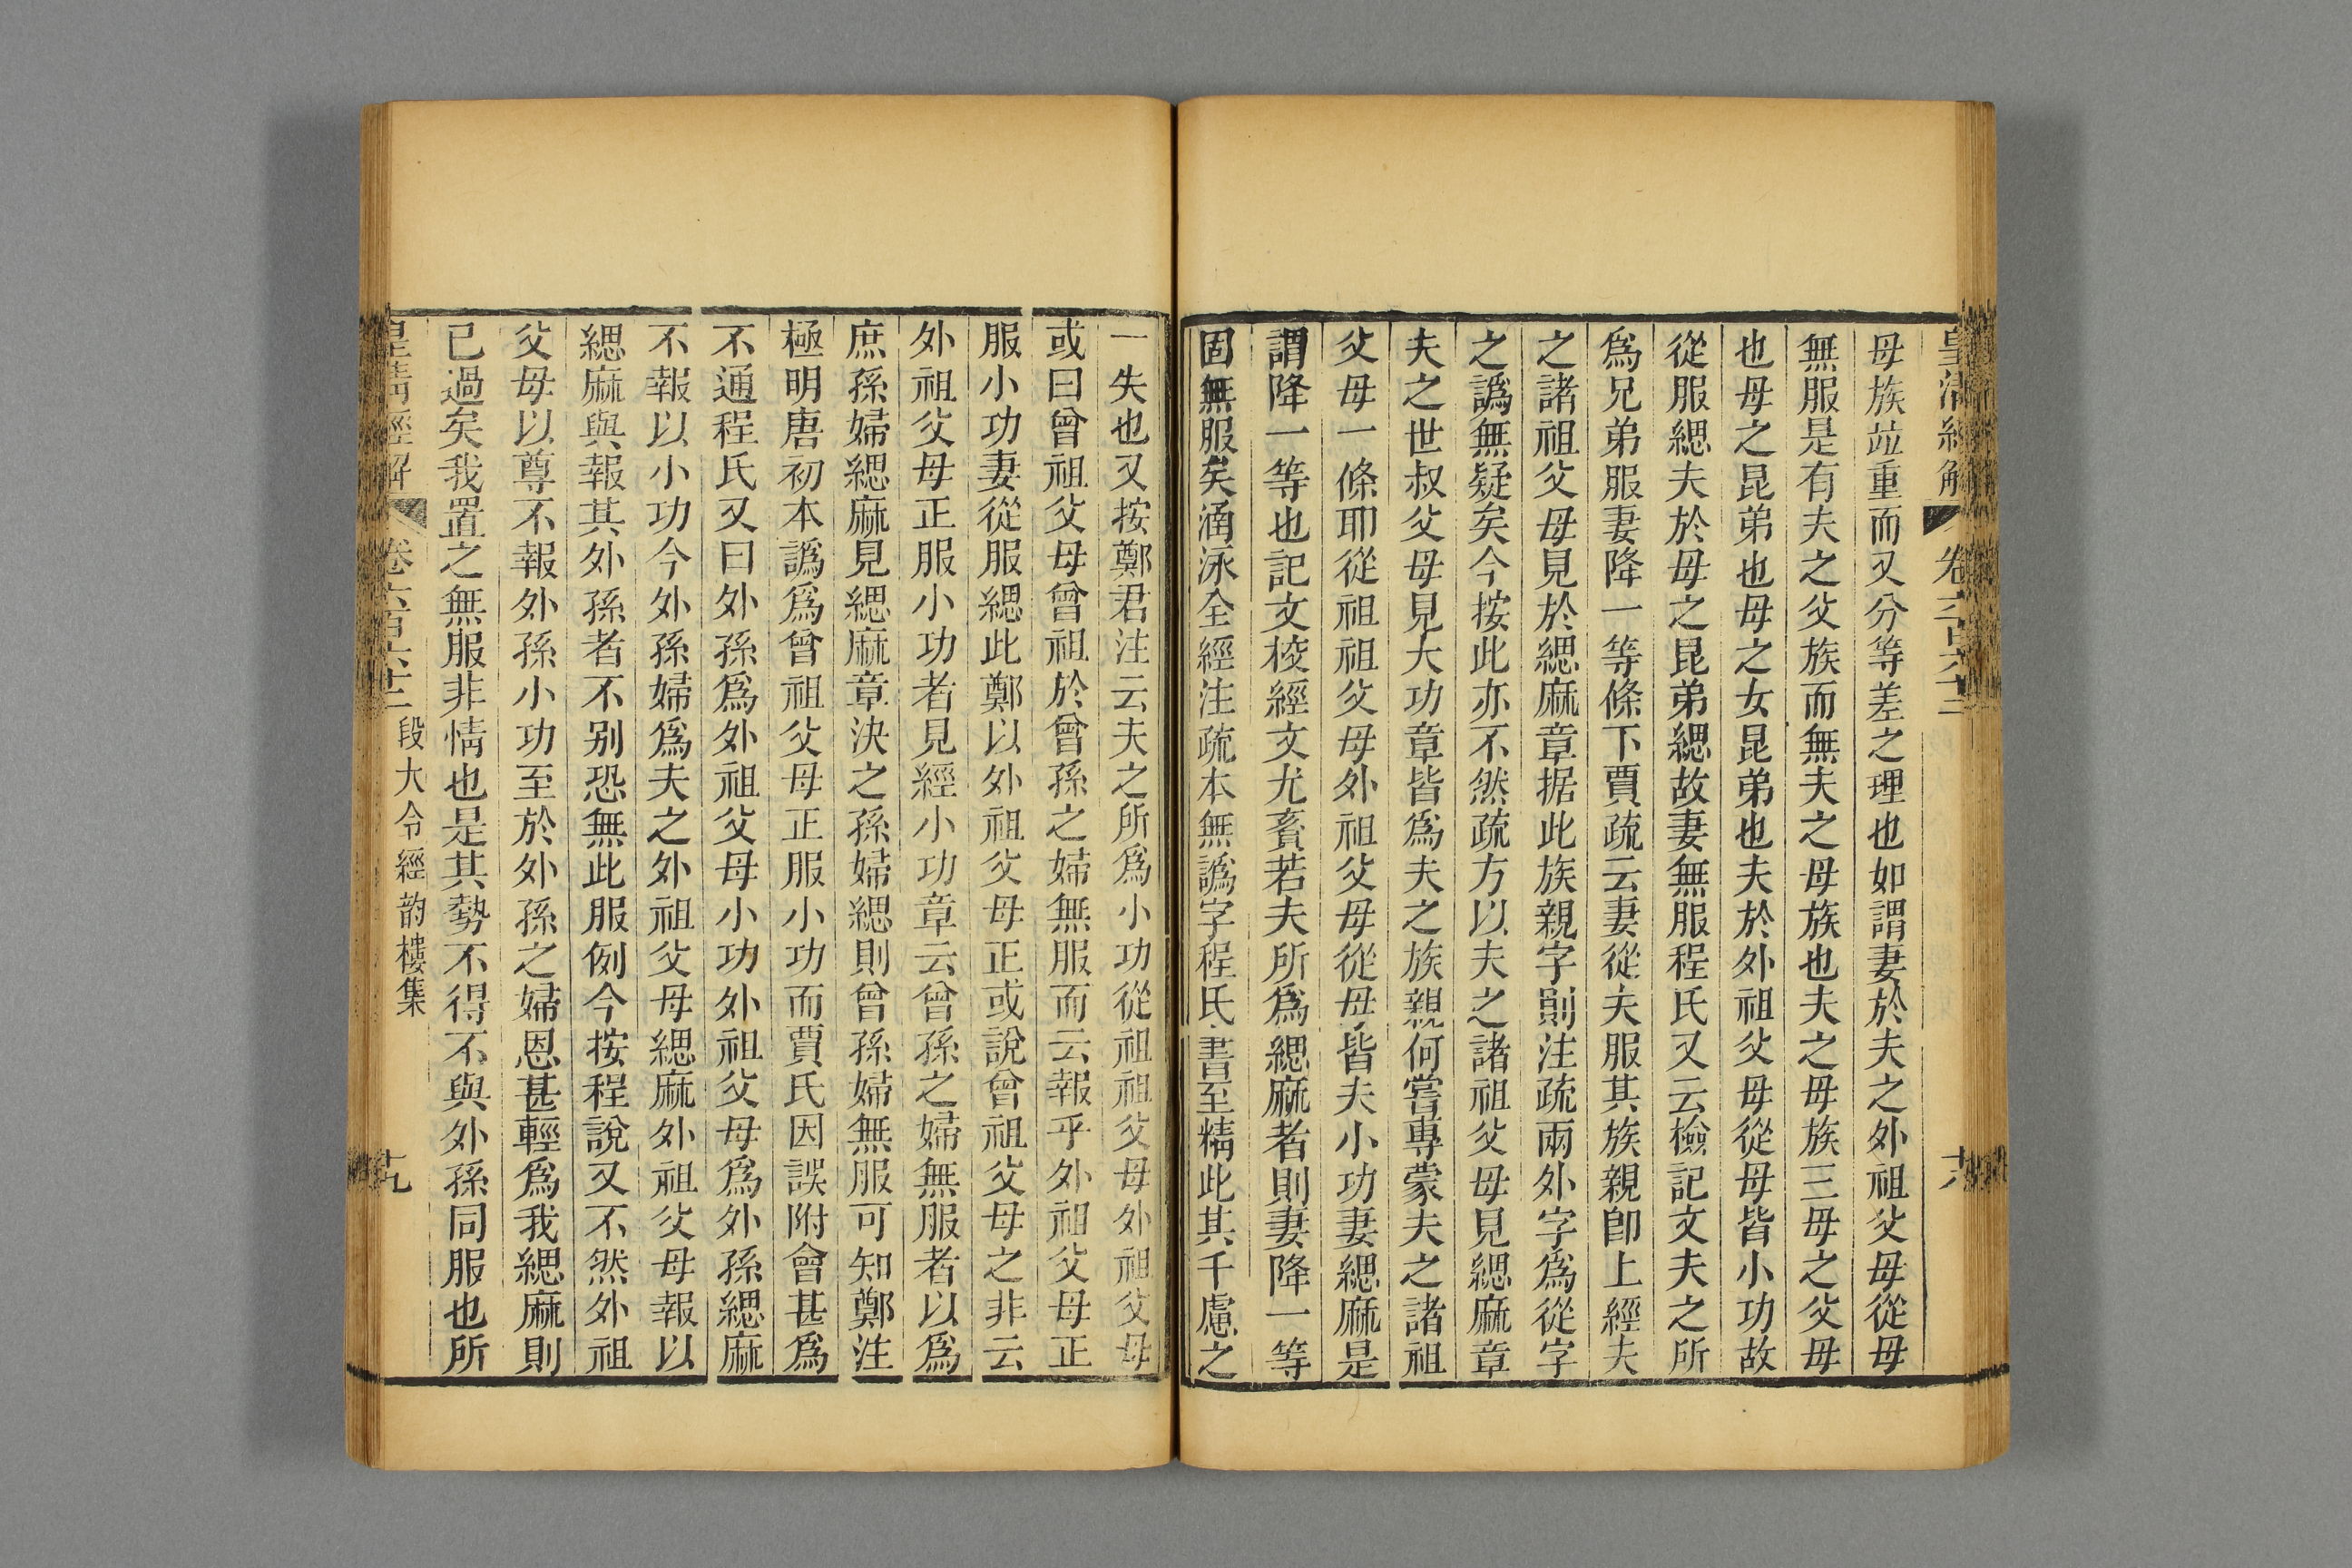 皇清經解 卷六百六十二 十八
母族竝重而又分等差之理也如謂妻於夫之外祖父母從母
無服是有夫之父族而無夫之母族也夫之母族三母之父母
也母之昆弟也母之女昆弟也夫於外祖父母從母皆小功故
從服緦夫於母之昆弟緦故妻無服程氏又云檢記文夫之所
爲兄弟服妻降一等條下賈疏云妻從夫服其族親卽上經夫
之諸祖父母見於緦麻章据此族親字則注疏兩外字爲從字
之譌無疑矣今按此亦不然疏方以夫之諸祖父母見緦麻章
夫之世叔父母見大功章皆爲夫之族親何嘗專蒙夫之諸祖
父母一條耶從祖祖父母外祖父母從母皆夫小功妻緦麻是
謂降一等也記文校經文尤賅若夫所爲緦麻者則妻降一等
固無服矣涵泳全經注疏本無譌字程氏書至精此其千慮之
一失也又按鄭君注云夫之所爲小功從祖祖父母外祖父母
或曰曾祖父母曾祖於曾孫之婦無服而云報乎外祖父母正
服小功妻從服緦此鄭以外祖父母正或說曾祖父母之非云
外祖父母正服小功者見經小功章云曾孫之婦無服者以爲
庶孫婦緦麻見緦麻章決之孫婦緦則曾孫婦無服可知鄭注
極明唐初本譌爲曾祖父母正服小功而賈氏因誤附會甚爲
不通程氏又曰外孫爲外祖父母小功外祖父母爲外孫緦麻
不報以小功今外孫婦爲夫之外祖父母緦麻外祖父母報以
緦麻與報其外孫者不别恐無此服例今按程說又不然外祖
父母以尊不報外孫小功至於外孫之婦恩甚輕爲我緦麻則
已過矣我置之無服非情也是其勢不得不與外孫同服也所
皇清經解 卷六百六十二 段大令經韵樓集 十九